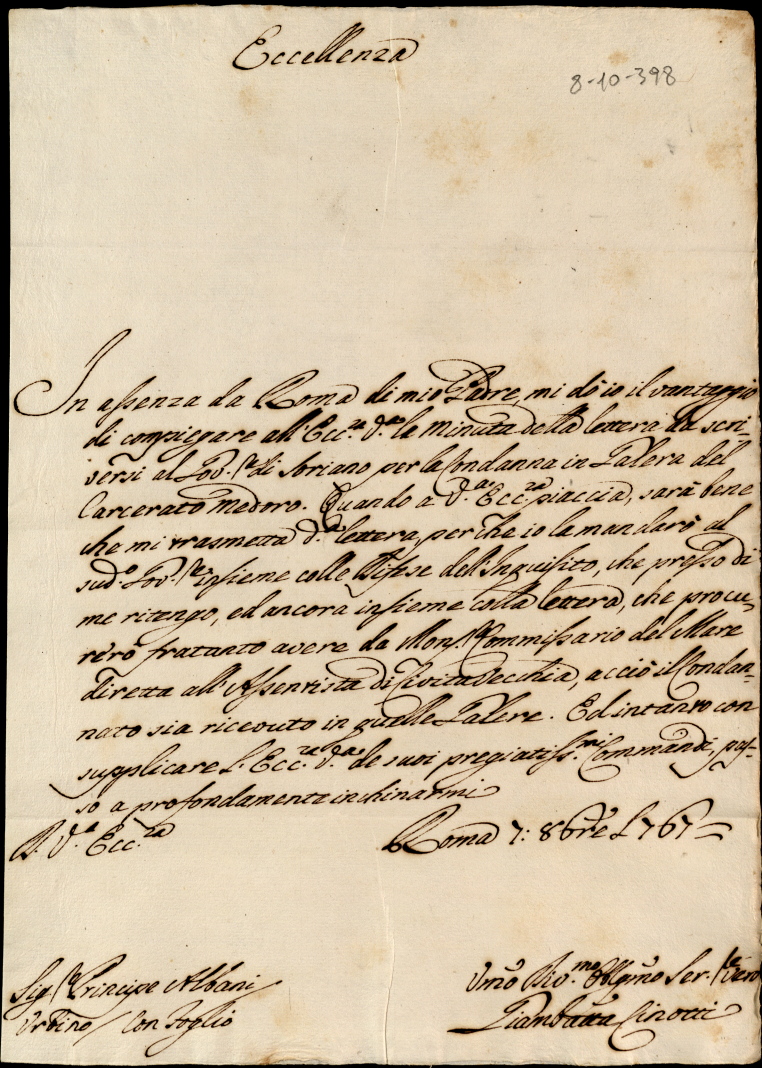 Eccellenza
8-10-398
In assenza da Roma di mio Padre, mi dò io il vantaggio
di compiegare all'Ecc.za V.ra la minuta della lettera da scri-
versi al Gov.re di Soriano per la Condanna in Galera del
Carcerato Medoro. Quando a V.ra Ecc.za piaccia, sarà bene
che mi trasmetta d.a lettera, perche io la manderò al
sud.o Gov.re insieme colle Difese dell'Inquisito, che presso di
me ritengo, ed ancora insieme colla lettera, che procu-
rerò fratanto avere da Mons.r Commissario del Mare
diretta all'Assentista di Civita Vecchia, acciò il Condan-
nato sia ricevuto in quelle Galere. Ed intanto con
supplicare l'Ecc.za V.ra de suoi pregiatiss.mi Commandi, pas-
so a profondamente inchinarmi
D. V.a Ecc.za
Roma 7: 8bre 1767
Sig.re Principe Albani
Urbino / Con Foglio
Vmo Div.mo Obligmo Ser.re Vero
Giambatta Cinotti